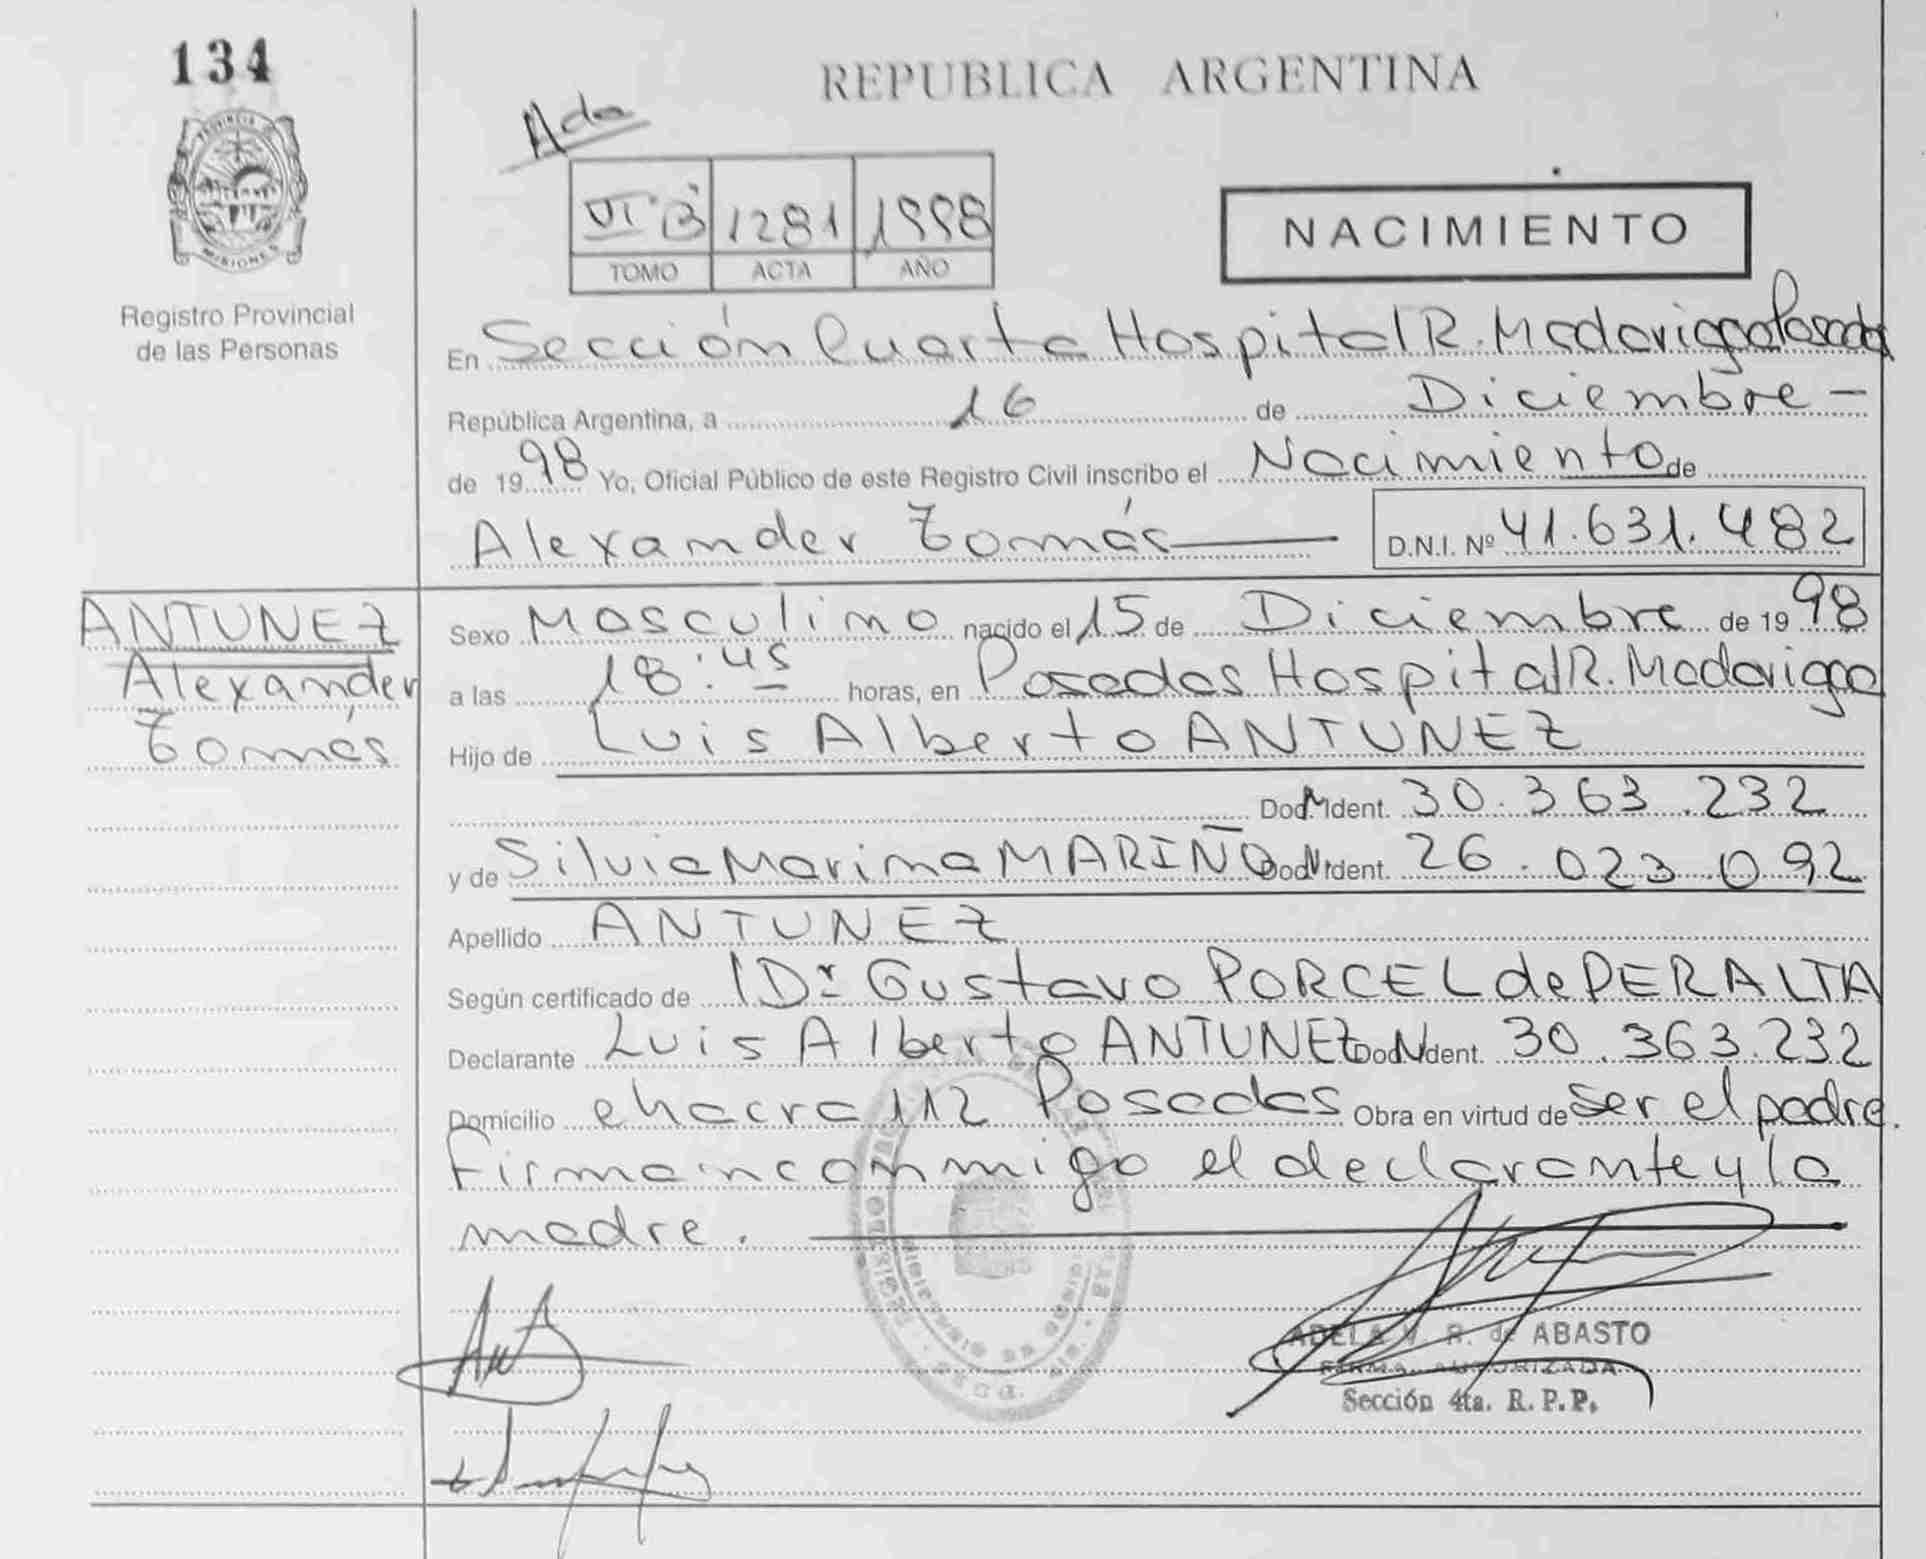 134
REPUBLICA ARGENTINA
PROVINCIA DE
MISIONES
Registro Provincial
de las Personas
VI B 1281 1998
TOMO ACTA AÑO
NACIMIENTO
En Sección Cuarta Hospital R. Madariaga Posadas
República Argentina, a 16 de Diciembre
de 1998 Yo, Oficial Público de este Registro Civil inscribo el Nacimiento de
Alexander Tomás D.N.I. Nº 41.631.482
ANTUNEZ
Alexander
Tomás
Sexo Masculino nacido el 15 de Diciembre de 1998
a las 18:45 horas, en Posadas Hospital R. Madariaga
Hijo de Luis Alberto ANTUNEZ
Doc. Ident. 30.363.232
y de Silvia Marina MARIÑO Doc. Ident. 26.023.092
Apellido ANTUNEZ
Según certificado de Dr Gustavo PORCEL de PERALTA
Declarante Luis Alberto ANTUNEZ Doc. Ident. 30.363.232
Domicilio chacra 112 Posadas Obra en virtud de ser el padre.
Firman conmigo el declarante y la
madre.
ADELA V. R. de ABASTO
FIRMA AUTORIZADA
Sección 4ta. R. P. P.